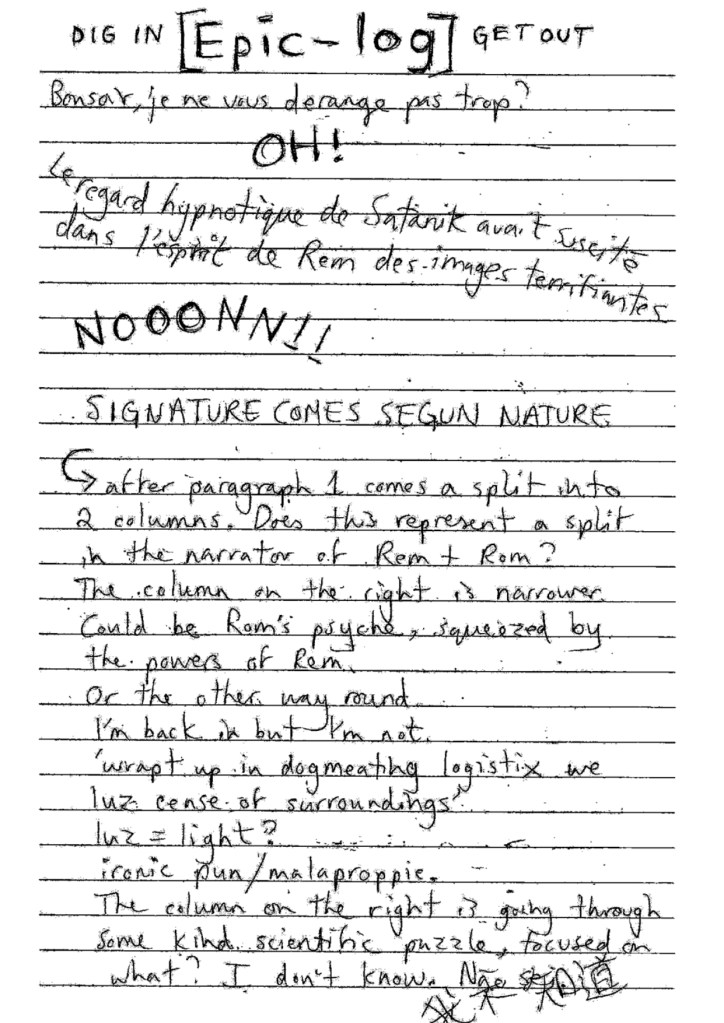 DIG IN [Epic-log] GET OUT
Bonsar, je ne vous derange pas trop?
OH!
Le regard hypnotique de Satanik avait suscité
dans l'esprit de Rem des images terrifiantes
NOOONN!!
SIGNATURE COMES SEGUN NATURE
after paragraph 1 comes a split into
2 columns. Does this represent a split
in the narrator of Rem + Rom?
The column on the right is narrower.
Could be Rom's psyche, squeezed by
the powers of Rem.
Or the other way round
I'm back in but I'm not.
'wrapt up in dogmeating logistix we
luz cense of surroundings'
luz = light?
ironic pun/malaproppie.
The column on the right is going through
some kind scientific puzzle, focused on
what? I don't know. Não sei
我不知道